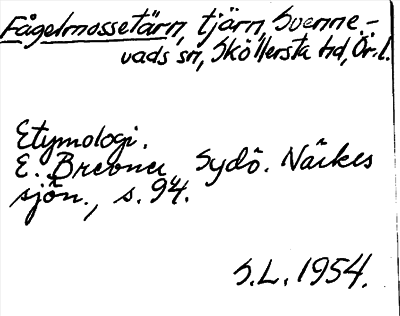 Fågelmossetärn, tjärn, Svenne-
vads sn, Sköllersta hd, Ör. l.
Etymologi.
E. Brevner Sydö. Närkes
sjön., s. 94.
S.L. 1954.